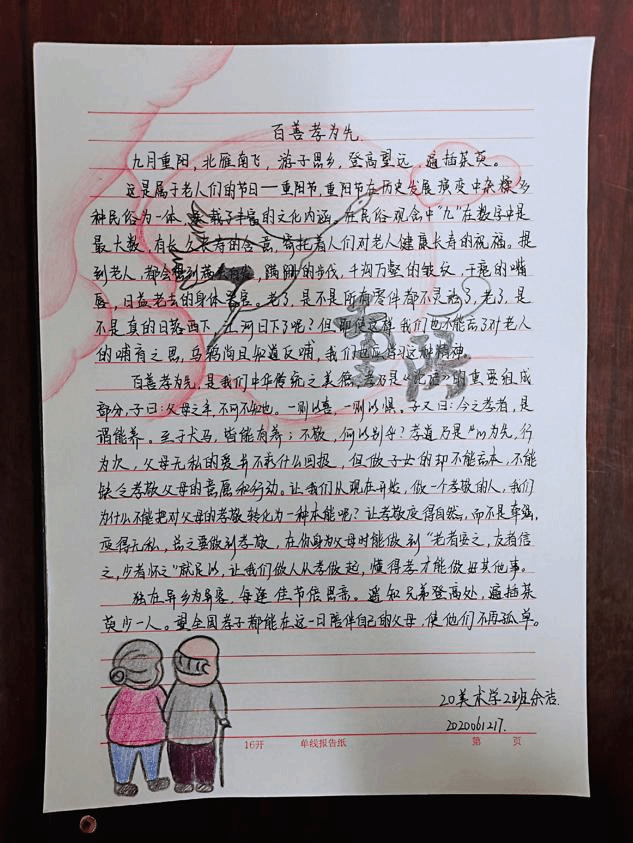 百善孝为先
九月重阳，北雁南飞，游子思乡，登高望远，遍插茱萸。
这是属于老人们的节日——重阳节，重阳节在历史发展演变中杂糅多
种民俗为一体，承载了丰富的文化内涵，在民俗观念中“九”在数字中是
最大数，有长久长寿的含意，寄托着人们对老人健康长寿的祝福。提
到老人，都会想到满头白发，蹒跚的步伐，千沟万壑的皱纹，干瘪的嘴
唇，日益老去的身体器官。老了，是不是所有零件都不灵敏了，老了，是
不是真的日落西下，江河日下了呢？但即使这样我们也不能忘了对老人
的哺育之恩，乌鸦尚且知道反哺，我们也应学习这种精神
重阳
百善孝为先，是我们中华传统之美德，孝乃是“北德”的重要组成
部分，子曰：父母之年，不可不知也。一则以喜，一则以惧。子又曰：今之孝者，是
谓能养。至于犬马，皆能有养；不敬，何以别乎？孝道乃是“心为先，行
为次，父母无私的爱并不求什么回报，但做子女的却不能忘本，不能
缺乏孝敬父母的意愿和行动。让我们从现在开始，做一个孝敬的人，我们
为什么不能把对父母的孝敬转化为一种本能呢？让孝敬变得自然，而不是牵强，
变得无私，总之要做到孝敬，在你身为父母时能做到“老者安之，友者信
之，少者怀之”就足以，让我们做人从孝做起，懂得孝才能做好其他事。
独在异乡为异客，每逢佳节倍思亲。遥知兄弟登高处，遍插茱
萸少一人。望全国孝子都能在这一日陪伴自己的父母，使他们不再孤单。
20美术学2班余洁
2020061217.
16开 单线报告纸 第 页